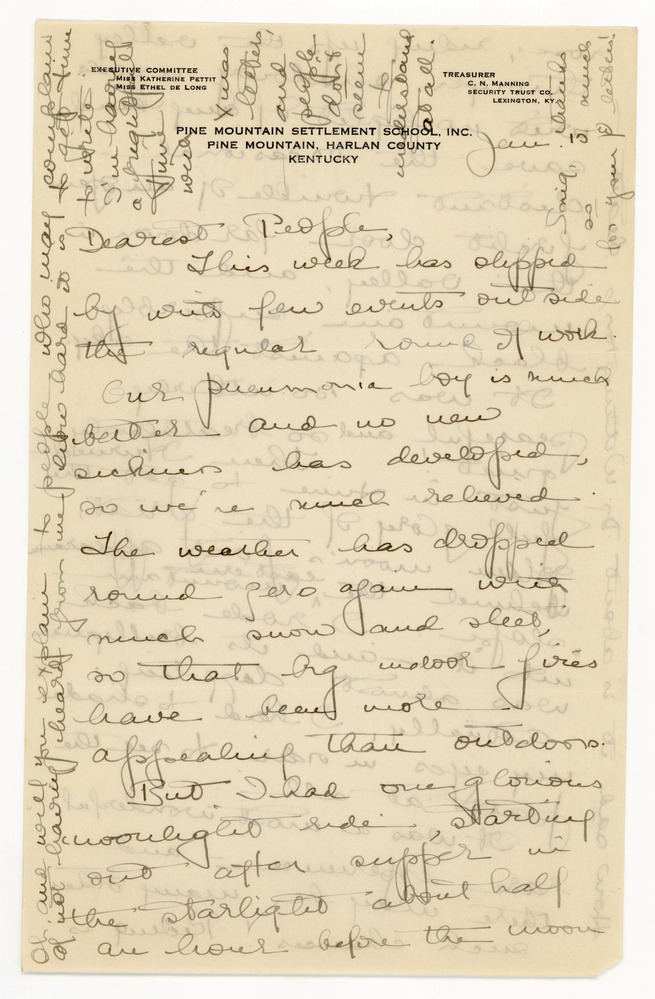 EXECUTIVE COMMITTEE
MISS KATHERINE PETTIT
MISS ETHEL DE LONG
TREASURER
C. N. MANNING
SECURITY TRUST CO.
LEXINGTON, KY.
PINE MOUNTAIN SETTLEMENT SCHOOL, INC.
PINE MOUNTAIN, HARLAN COUNTY
KENTUCKY
Jan.
Dearest People,
This week has slipped
by with few events outside
the regular round of work.
Our pneumonia boy is much
better and no new
sickness has developed,
so we're much relieved.
The weather has dropped
round zero again with
much snow and sleet,
so that big indoor fires
have been more
appealing than outdoors.
But I had one glorious
moonlight ride, starting
out after supper in
the starlight about half
an hour before the moon
Oh, and will you explain to people who may complain
of not having heard from me how hard it is to get time
to write.
I'm having
a frightful
time
with
Xmas
letters,
and
people
don't
seem
to
understand
at all.
thanks
so much
for your letters!